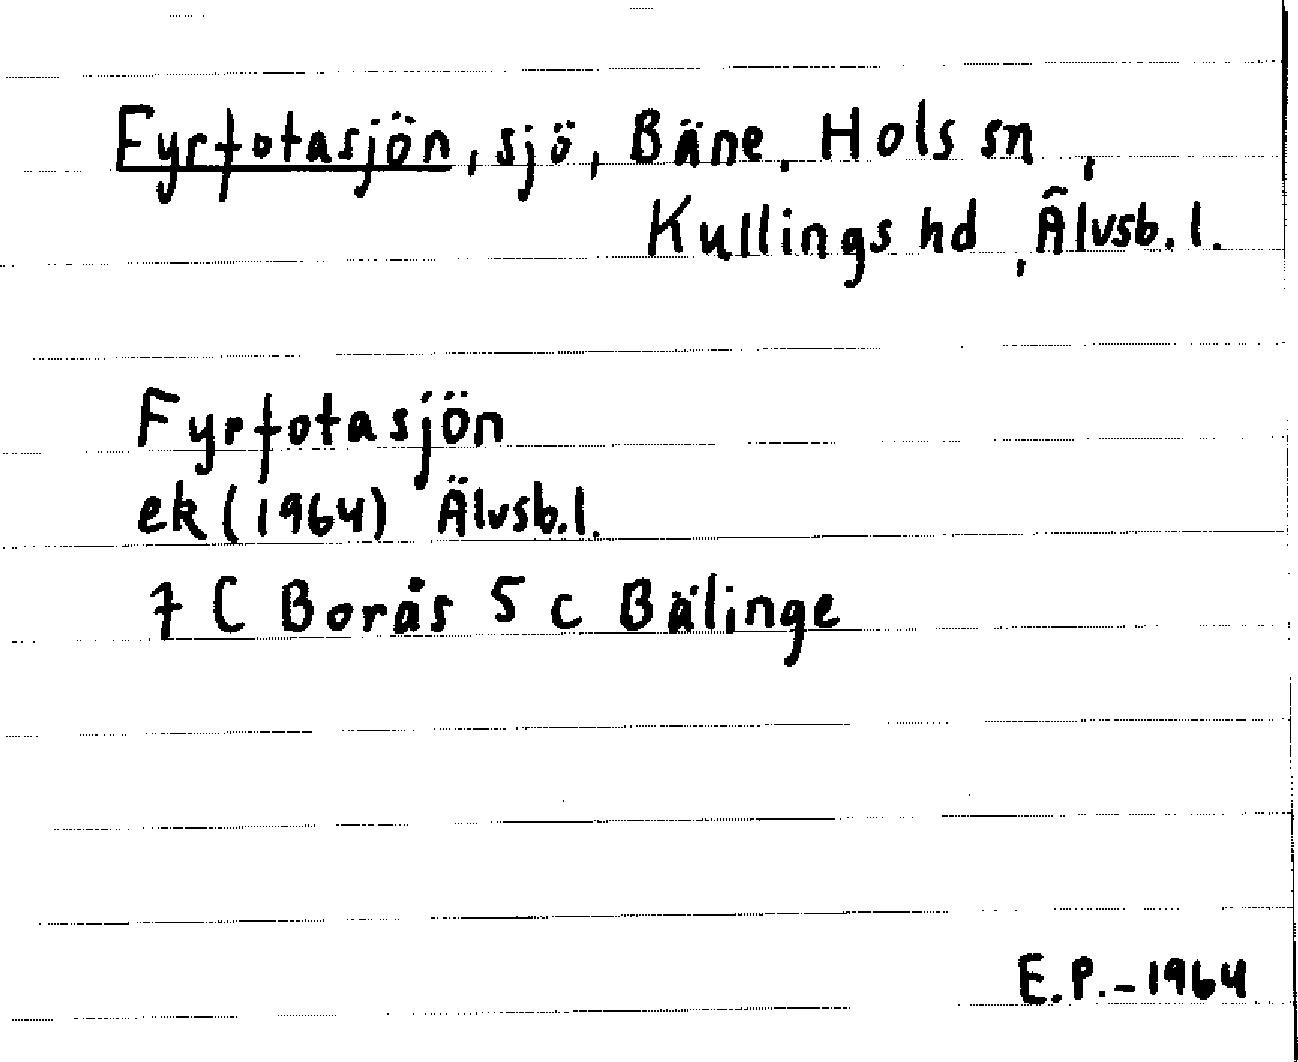 Fyrfotasjön, sjö, Bäne, Hols sn,
Kullings hd, Älvsb. l.
Fyrfotasjön
ek (1964) Älvsb.l.
7 C Borås 5 c Bälinge
E.P.-1964